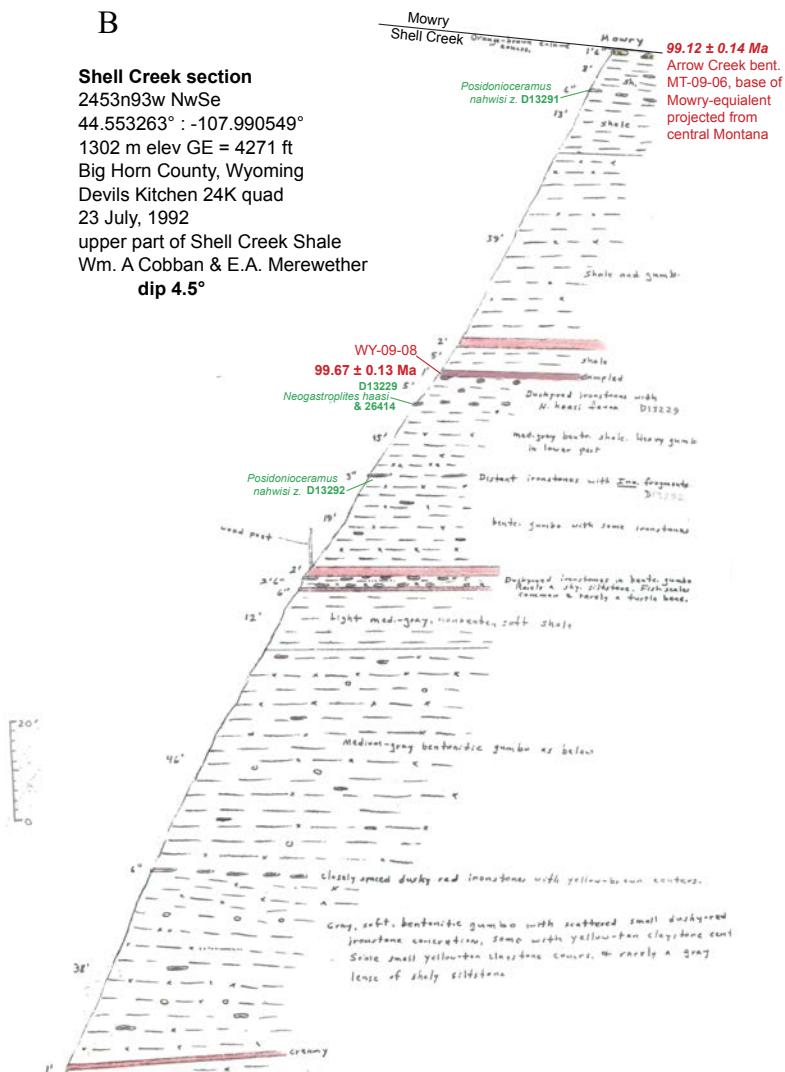 B
Shell Creek section
2453n93w NwSe
44.553263° : -107.990549°
1302 m elev GE = 4271 ft
Big Horn County, Wyoming
Devils Kitchen 24K quad
23 July, 1992
upper part of Shell Creek Shale
Wm. A Cobban & E.A. Merewether
dip 4.5°
Mowry
Shell Creek
Mowry
Orange-brown
1'6"
99.12 ± 0.14 Ma
Arrow Creek bent.
MT-09-06, base of
Mowry-equialent
projected from
central Montana
8'
sh.
Posidonioceramus
nahwisi z. D13291
6"
13'
shale
39'
Shale and gumbo
2'
5'
shale
WY-09-08
99.67 ± 0.13 Ma
1'
Sampled
D13229
5'
Neogastroplites haasi
& 26414
Duskyred ironstones with
N. haasi fauna D13229
15'
med-gray bento. shale. Heavy gumbo
in lower part
3"
Posidonioceramus
nahwisi z. D13292
Distant ironstones with Ino. fragments
D13292
19'
bento. gumbo with some ironstones
wood post
2'
2'6"
6"
Duskyred ironstones in bento. gumbo
Rarely a shy. siltstone. Fish scales
common & rarely a turtle bone.
12'
Light med-gray, nonbento, soft shale
20'
0
46'
Medium-gray bentonitic gumbo as below
6"
Closely spaced dusky red ironstones with yellow-brown centers.
Gray, soft, bentonitic gumbo with scattered small dusky-red
ironstone concretion, some with yellow-tan claystone cent
Some small yellow-tan claystone concrs. & rarely a gray
lense of shaly siltstone
38'
1'
creamy